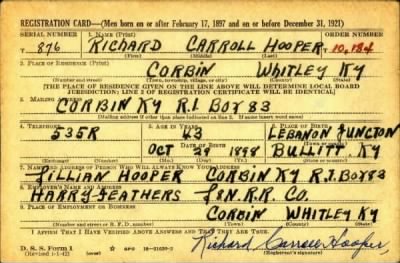 REGISTRATION CARD—(Men born on or after February 17, 1897 and on or before December 31, 1921)
SERIAL NUMBER 1. NAME (Print) ORDER NUMBER
T 876 RICHARD CARROLL HOOPER T 10,184
(First) (Middle) (Last)
2. PLACE OF RESIDENCE (Print)
CORBIN WHITLEY KY
(Number and street) (Town, township, village, or city) (County) (State)
[THE PLACE OF RESIDENCE GIVEN ON THE LINE ABOVE WILL DETERMINE LOCAL BOARD
JURISDICTION; LINE 2 OF REGISTRATION CERTIFICATE WILL BE IDENTICAL]
3. MAILING ADDRESS
CORBIN KY R.1 BOX 83
[Mailing address if other than place indicated on line 2. If same insert word same]
4. TELEPHONE 5. AGE IN YEARS 6. PLACE OF BIRTH
535R 43 LEBANON JUNCTION
DATE OF BIRTH
OCT 29 1898 BULLITT, KY
(Exchange) (Number) (Mo.) (Day) (Yr.) (State or country)
7. NAME AND ADDRESS OF PERSON WHO WILL ALWAYS KNOW YOUR ADDRESS
LILLIAN HOOPER CORBIN KY R.1 BOX 83
8. EMPLOYER'S NAME AND ADDRESS
HARRY FEATHERS L&N.R.R. CO.
9. PLACE OF EMPLOYMENT OR BUSINESS
CORBIN WHITLEY KY
(Number and street or R. F. D. number) (Town) (County) (State)
I AFFIRM THAT I HAVE VERIFIED ABOVE ANSWERS AND THAT THEY ARE TRUE.
D. S. S. Form 1
(Revised 1-1-42) GPO 16-21630-2
Richard Carroll Hooper
(Registrant's signature)